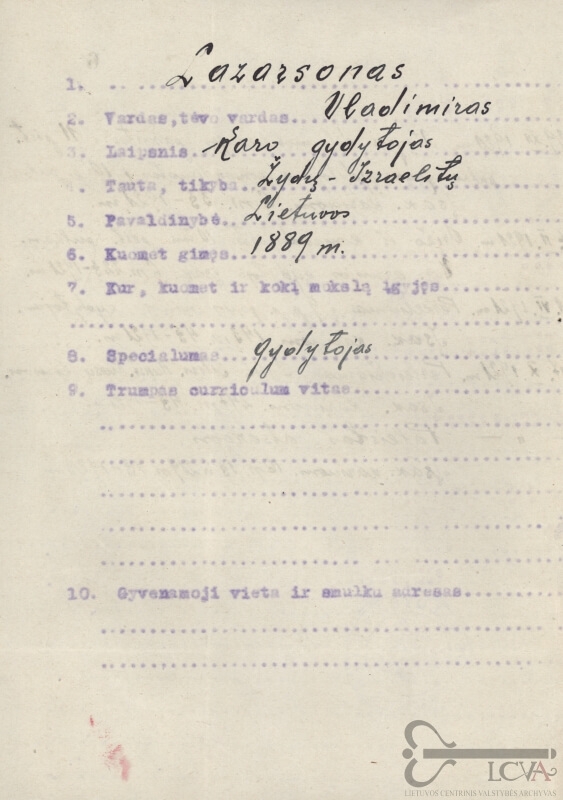 1. Lazarsonas
2. Vardas, tėvo vardas Vladimiras
3. Laipsnis Karo gydytojas
. Tauta, tikyba Žydų - Izraelitų
5. Pavaldinybė Lietuvos
6. Kuomet gimęs 1889 m.
7. Kur, kuomet ir kokį mokslą igyjęs
8. Specialumas gydytojas
9. Trumpas curriculum vitas
10. Gyvenamoji vieta ir smulku adresas
LCVA
LIETUVOS CENTRINIS VALSTYBĖS ARCHYVAS